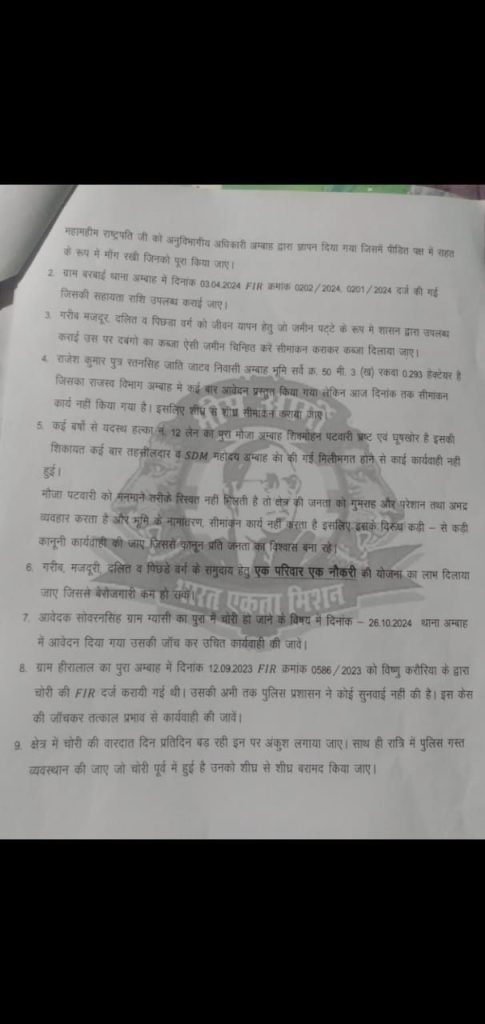 महामहीम राष्ट्रपति जी को अनुविभागीय अधिकारी अम्बाह द्वारा ज्ञापन दिया गया जिसमें पीडित पक्ष में राहत
के रूप में माँग रखी जिनको पूरा किया जाए।
2. ग्राम बरबाई थाना अम्बाह में दिनांक 03.04.2024 FIR क्रमांक 0202/2024, 0201/2024 दर्ज की गई
जिसकी सहायता राशि उपलब्ध कराई जाए।
3. गरीब मजदूर, दलित व पिछडा वर्ग को जीवन यापन हेतु जो जमीन पट्टे के रूप मे शासन द्वारा उपलब्ध
कराई उस पर दबंगो का कब्जा ऐसी जमीन चिन्हित करें सीमाकन कराकर कब्जा दिलाया जाए।
4. राजेश कुमार पुत्र रतनसिंह जाति जाटव निवासी अम्बाह भूमि सर्वे क्र. 50 मी. 3 (ख) रकवा 0.293 हेक्टेयर है
जिसका राजस्व विभाग अम्बाह मे कई बार आवेदन प्रस्तुत किया गया लेकिन आज दिनांक तक सीमाकन
कार्य नही किया गया है। इसलिए शीघ्र से शीघ्र सीमाकन कराया जाए।
5. कई बर्षो से पदस्थ हल्का नं. 12 लेन का पुरा मौजा अम्बाह शिवमोहन पटवारी भ्रष्ट एवं घूषखोर है इसकी
शिकायत कई बार तहसीलदार व SDM महोदय अम्बाह को की गई मिलीमगत होने से काई कार्यवाही नही
हुई।
मौजा पटवारी को मनमाने तरीके रिस्वत नही मिलती है तो क्षेत्र की जनता को गुमराह और परेशान तथा अभद्र
व्यवहार करता है और भूमि के नामांतरण, सीमाकन कार्य नहीं करता है इसलिए इसके विरूध कडी – से कडी
कानूनी कार्यवाही की जाए जिससे कानून प्रति जनता का विश्वास बना रहे।
6. गरीब, मजदूरी, दलित व पिछडे वर्ग के समुदाय हेतु एक परिवार एक नौकरी की योजना का लाभ दिलाया
जाए जिससे बेरोजगारी कम हो सके।
भारत एकता मिशन
7. आवेदक सोवरनसिंह ग्राम ग्यासी का पुरा में चोरी हो जाने के विषय में दिनांक – 26.10.2024 थाना अम्बाह
में आवेदन दिया गया उसकी जाँच कर उचित कार्यवाही की जावें।
8. ग्राम हीरालाल का पुरा अम्बाह में दिनांक 12.09.2023 FIR क्रमांक 0586/2023 को विष्णु करौरिया के द्वारा
चोरी की FIR दर्ज करायी गई थी। उसकी अभी तक पुलिस प्रशासन ने कोई सुनवाई नही की है। इस केस
की जाँचकर तत्काल प्रभाव से कार्यवाही की जावें।
9. क्षेत्र में चोरी की वारदात दिन प्रतिदिन बड़ रही इन पर अंकुश लगाया जाए। साथ ही रात्रि में पुलिस गस्त
व्यवस्थान की जाए जो चोरी पूर्व में हुई है उनको शीघ्र से शीघ्र बरामद किया जाए।